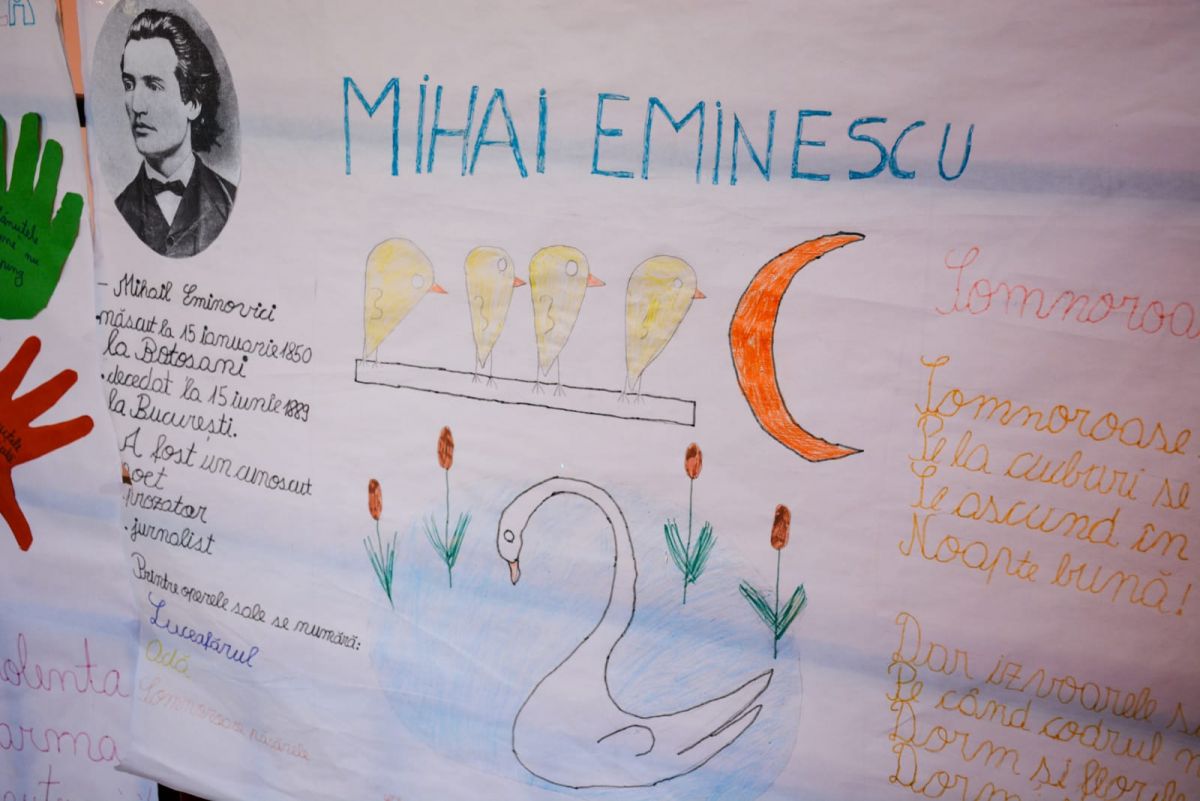 MIHAI EMINESCU
- Mihail Eminovici
•născut la 15 ianuarie 1850
la Botosani
•decedat la 15 iunie 1889
la București.
A fost un cunoscut
poet
prozator
- jurnalist
Printre operele sale se numără:
Luceafărul
Odă
Somnoroase păsărele
Somnoroa
Somnoroase
Pe la cuiburi se
Se ascund în
Noapte bună!
Dar izvoarele s
Pe când codrul n
Dorm și florile
Dorm
olenta
arma